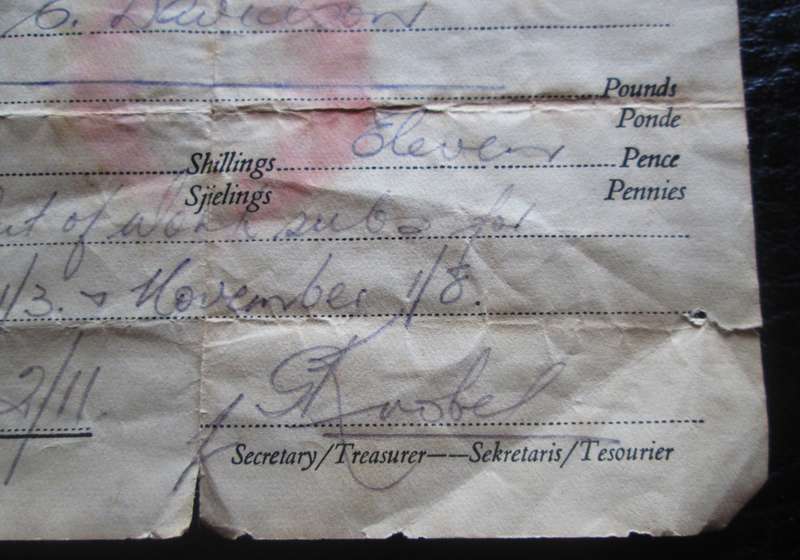 Davidson
Pounds
Ponde
Shillings Eleven Pence
Sjielings Pennies
out of work subs for
1/3. & November 1/8.
2/11.
Knobel
Secretary/Treasurer——Sekretaris/Tesourier